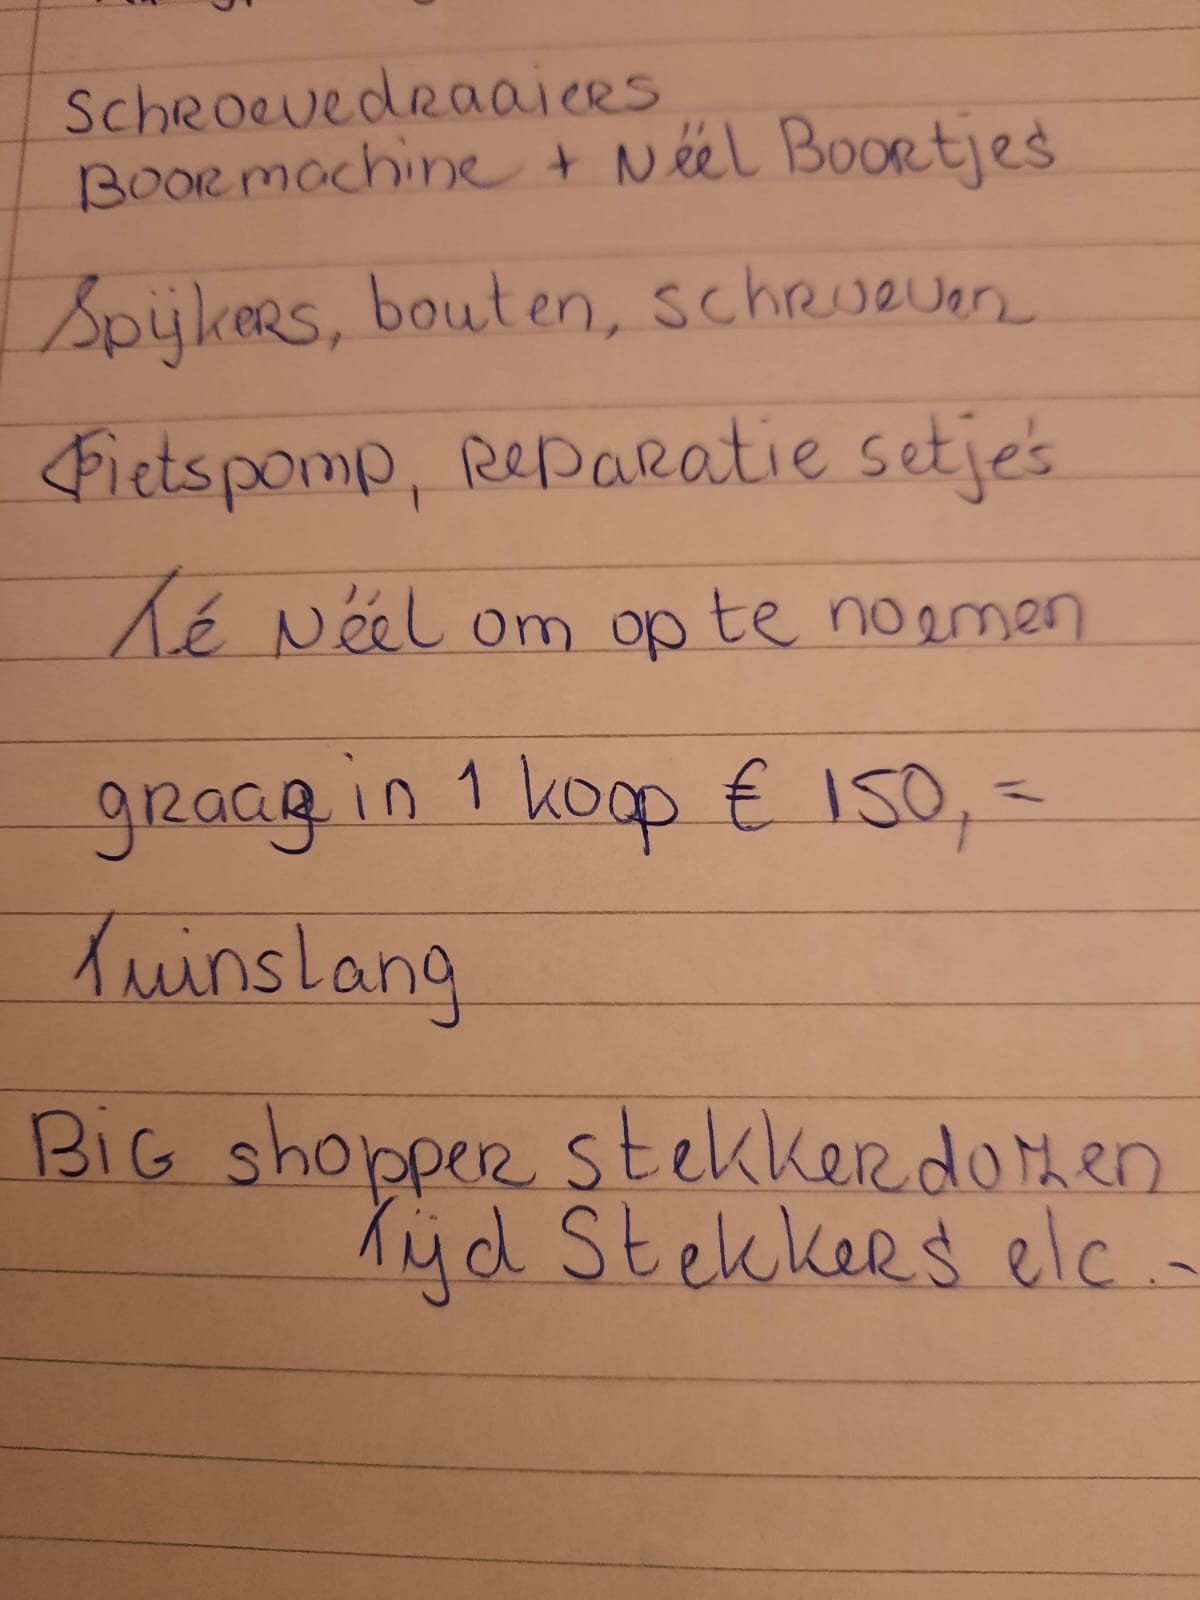 Schroevedraaiers
Boormachine + Véél Boortjes
Spijkers, bouten, schroeven
Fietspomp, reparatie setje's
Té Véél om op te noemen
graag in 1 koop € 150,=
Tuinslang
Big shopper stekkerdozen
Tijd Stekkers etc.-